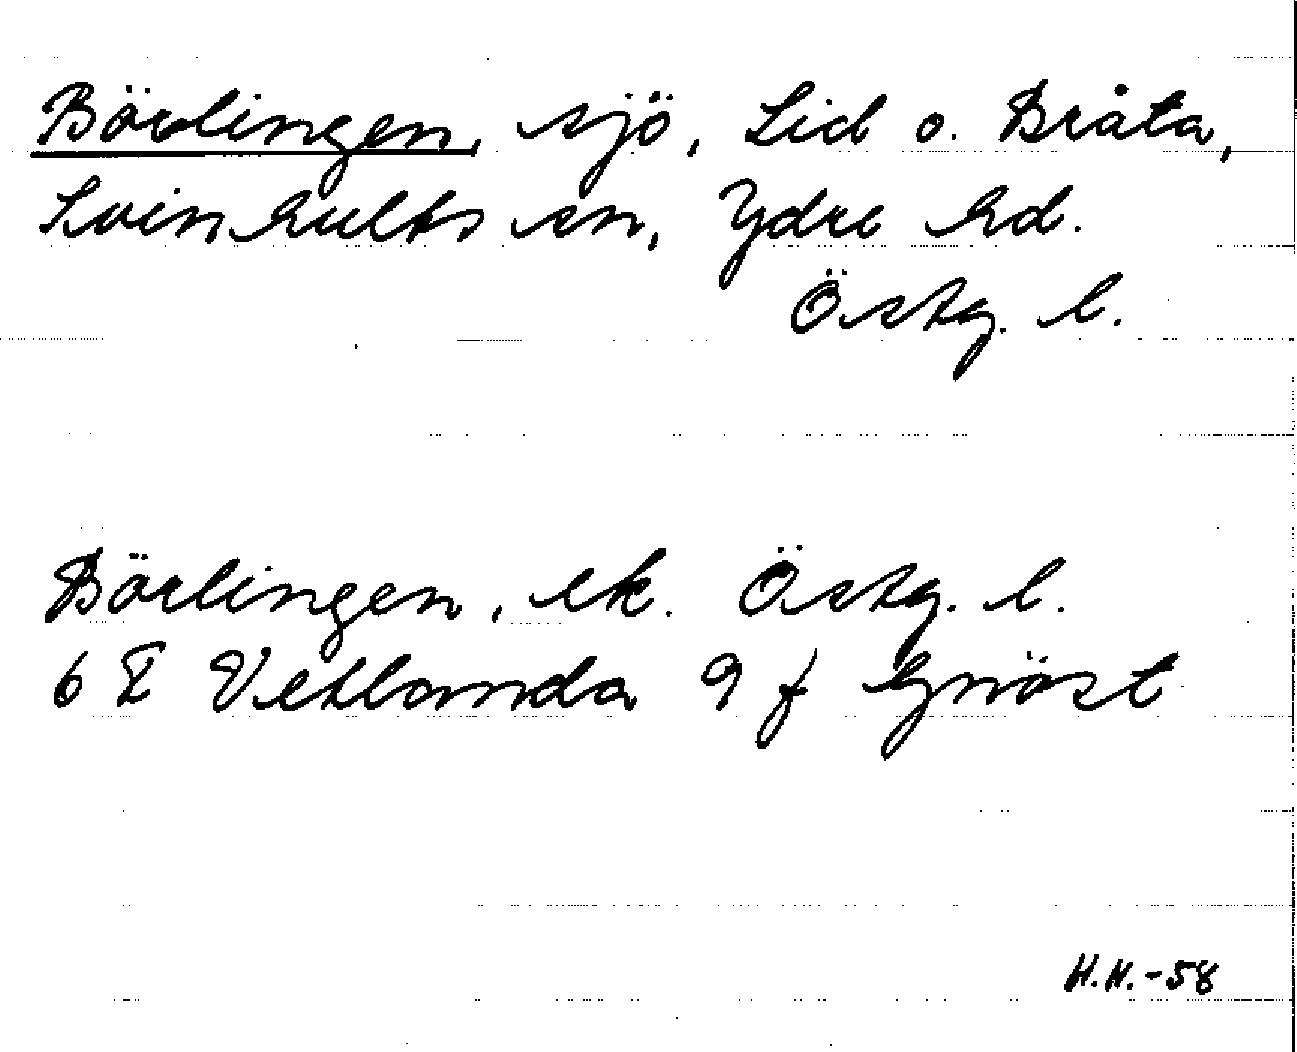 Börlingen, sjö, Lid o. Bråta,
Svinhults sn, Ydre hd.
Östg. l.
Börlingen, ek. Östg. l.
6 F Vetlanda 9 f Gnöst
H.H.-58